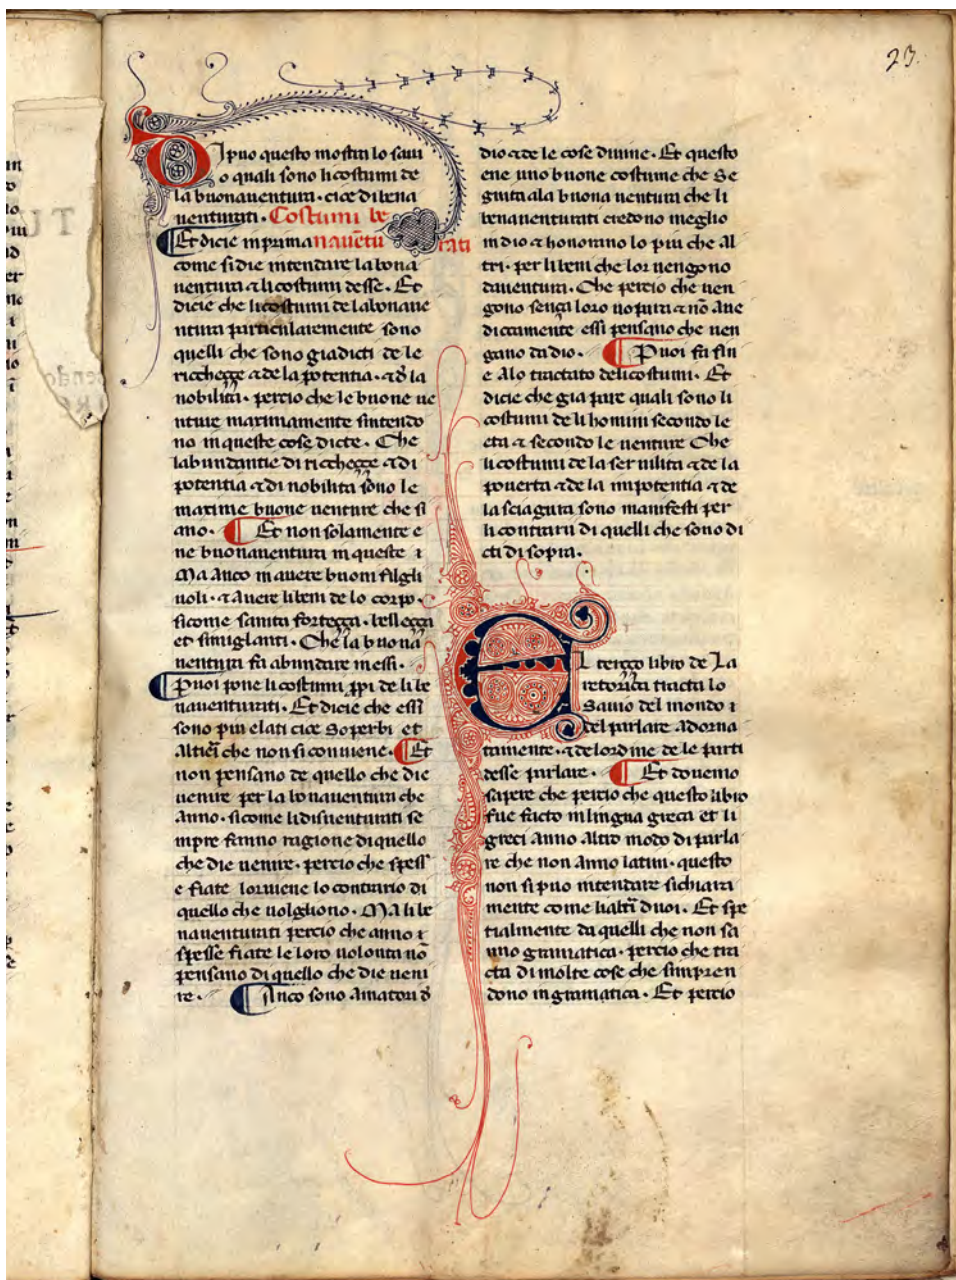 23.
DIpuo questo mostra lo saui
o quali sono li costumi de
la buonauentura · cioe di bena
uenturati · Costumi be
Et dicie in prima nauētu rati
come si die intendare la bona
uentura & li costumi desse · Et
dicie che li costumi de la bonaue
ntura particularemente sono
quelli che sono gia dicti de le
ricchegge & de la potentia · & d̄ la
nobilita · percio che le buone ue
nture maximamente sintendo
no in queste cose dicte · Che
labundantie di ricchegge & di
potentia & di nobilita sono le
maxime buone uenture che si
ano · Et non solamente e
ne buonauentura in queste ·
Ma anco in auere buoni filgli
uoli · & auere li beni de lo corpo ·
sicome sanita fortegga · bellegga
et simiglanti · Che la buona
uentura fa abundare in essi ·
Puoi pone li costumi ꝓpi de li be
nauenturati · Et dicie che essi
sono piu elati cioe Soperbi et
Altieri che non si conuiene · Et
non pensano de quello che die
uenire per la bonauentura che
anno · sicome li disuenturati se
mpre fanno ragione di quello
che die uenire · percio che spess
e fiate lor uiene lo contrario di
quello che uolgliono · Ma li be
nauenturati percio che anno
spesse fiate le loro uolonta nō
pensano di quello che die ueni
re · Anco sono amatori d̄
dio & de le cose diuine · Et questo
ene uno buone costume che Se
guita a la buona uentura che li
benauenturati credono meglio
in dio & honorano lo piu che al
tri · per li beni che lor uengono
dauentura · Che percio che uen
gono senga loro uopura & nō aue
dictamente essi pensano che uen
gano da dio · Puoi fa fin
e Alo tractato deli costumi · Et
dicie che gia pare quali sono li
costumi de li homini secondo le
eta & secondo le uenture Che
li costumi de la seruilita & de la
pouerta & de la impotentia & de
la sciagura sono manifesti per
li contrarii di quelli che sono di
cti di sopra ·
EL tergo libro de La
retorica tracta lo
Sauio del mondo &
del parlare adorna
tamente · & de lordine de le parti
desse parlare · Et douemo
sapere che percio che questo libro
fue facto in lingua greca et li
greci anno Altro modo di parla
re che non anno latini · questo
non si puo intendare si chiara
mente come li altri duoi · Et spe
tialmente da quelli che non sa
nno gramatica · percio che tra
cta di molte cose che simpren
dono in gramatica · Et percio